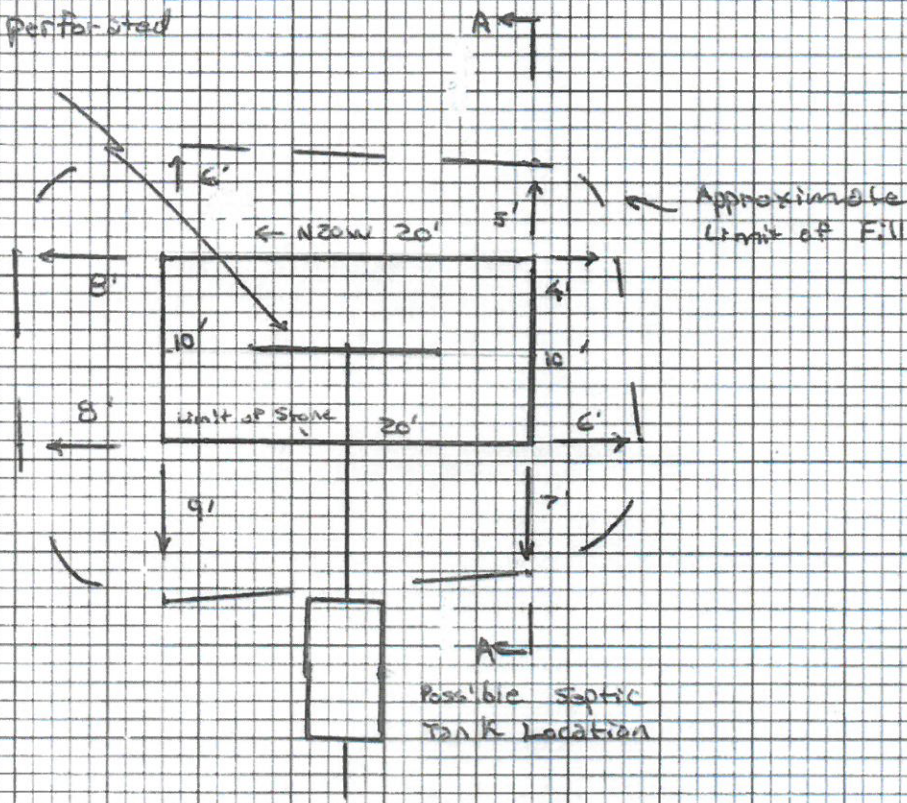 Perforated
A
6'
5'
Approximate
Limit of Fill
← N20W 20'
8'
4'
10'
10'
8'
Limit of Stone
20'
6'
9'
7'
A
Possible Septic
Tank Location